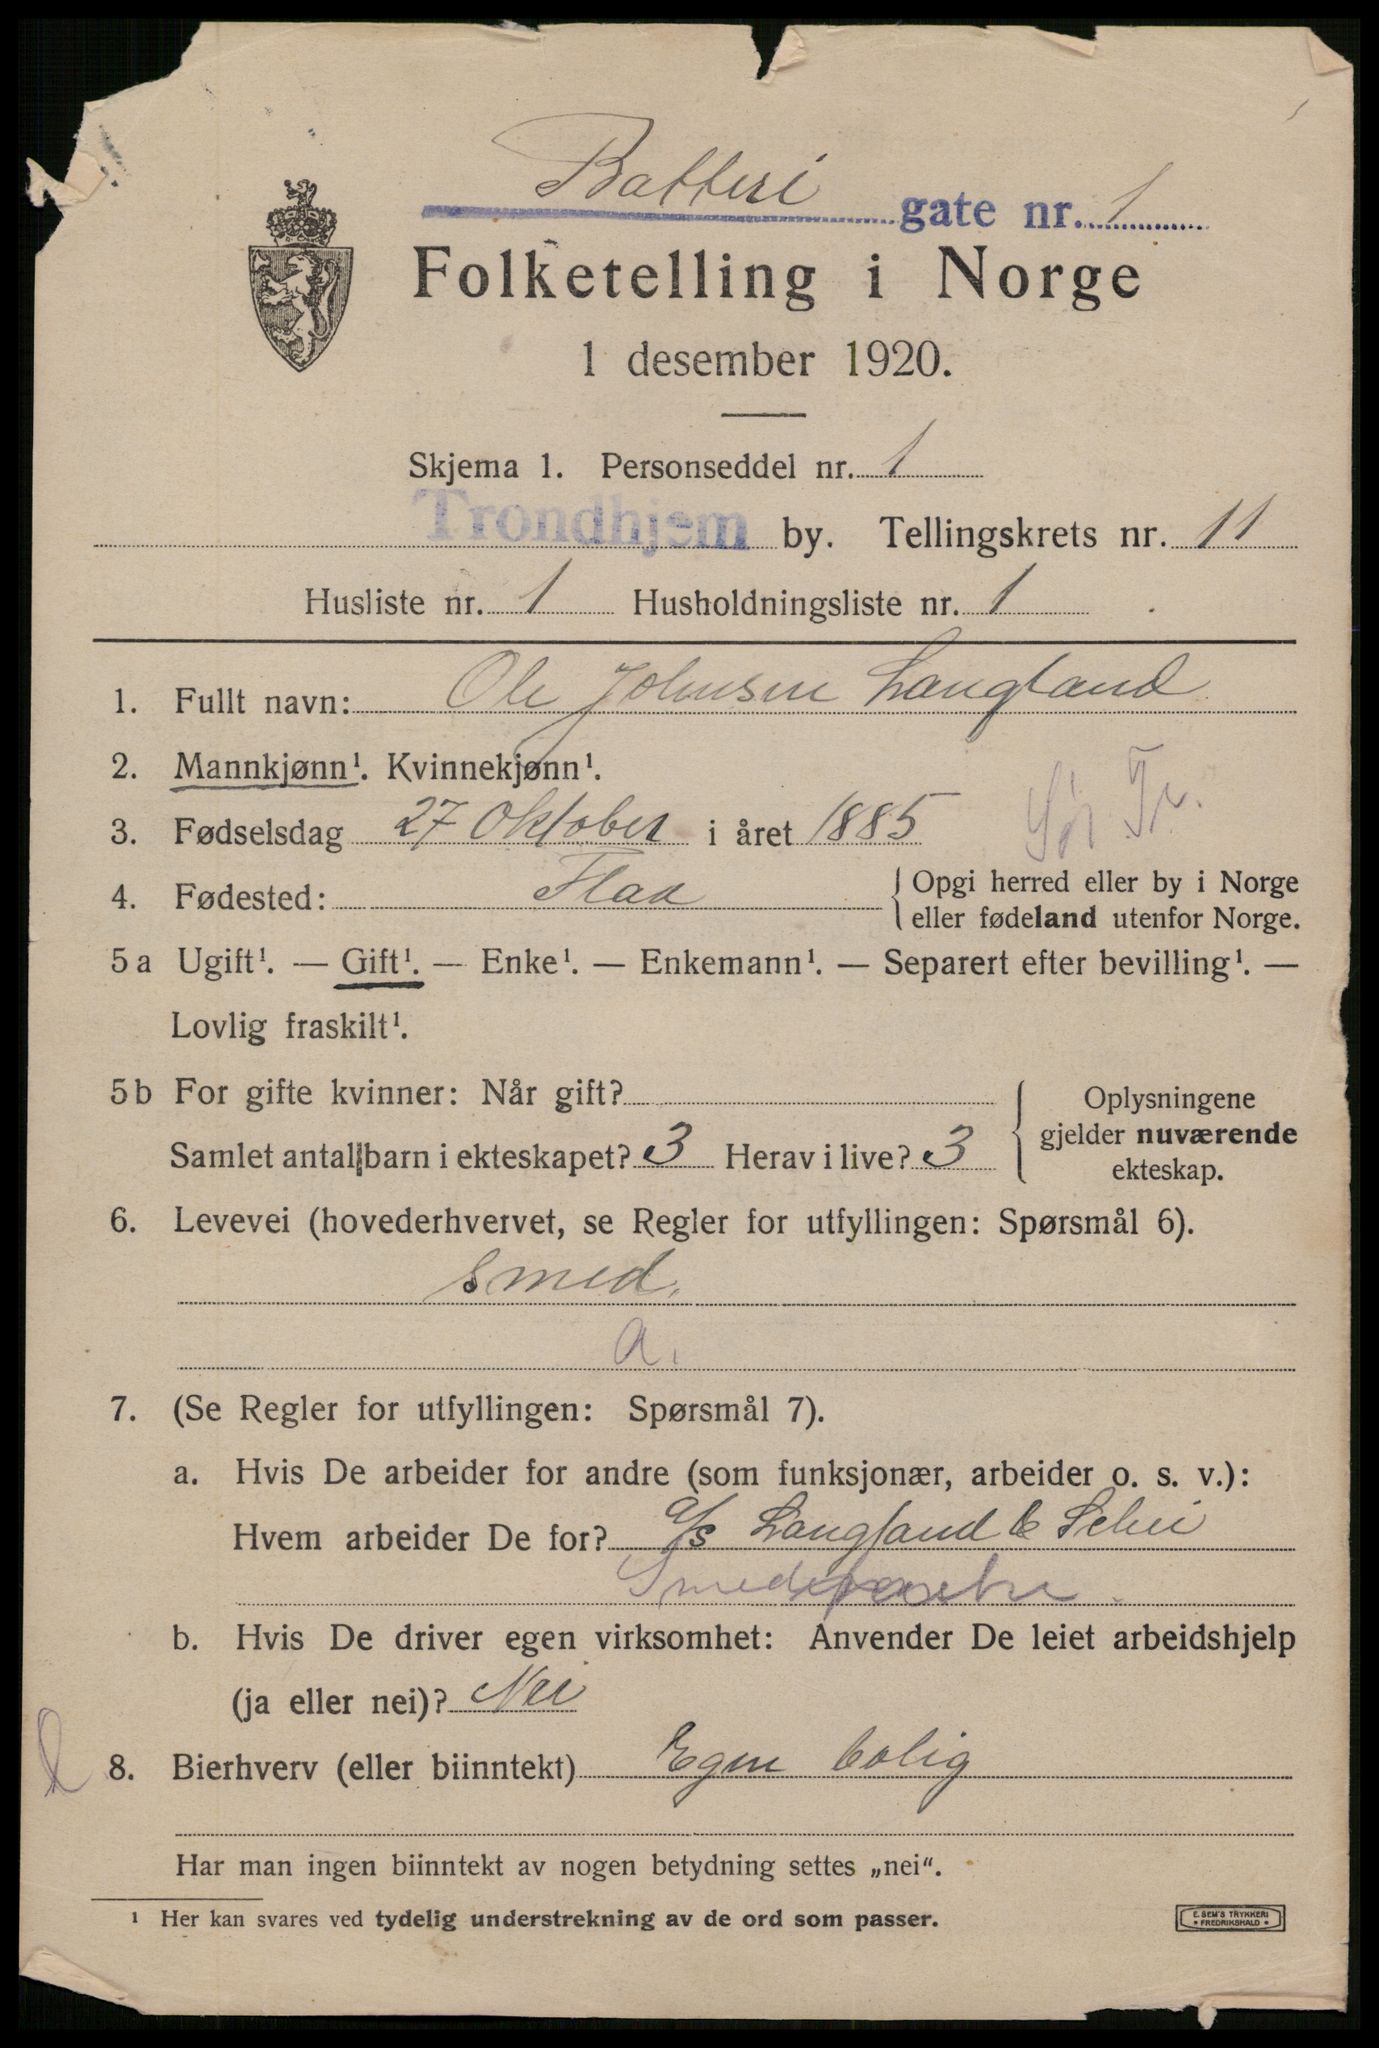 Batteri gate nr. 1
Folketelling i Norge
1 desember 1920.
Skjema 1. Personseddel nr. 1
Trondhjem by. Tellingskrets nr. 11
Husliste nr. 1 Husholdningsliste nr. 1
1. Fullt navn: Ole Johnsen Langland
2. Mannkjønn¹. Kvinnekjønn¹.
Sør Tr.
3. Fødselsdag 27 Oktober i året 1885
4. Fødested: Flaa { Opgi herred eller by i Norge
eller fødeland utenfor Norge.
5 a Ugift¹. — Gift¹. — Enke¹. — Enkemann¹. — Separert efter bevilling¹. —
Lovlig fraskilt¹.
5 b For gifte kvinner: Når gift? { Oplysningene
gjelder nuværende
ekteskap.
Samlet antall barn i ekteskapet? 3 Herav i live? 3
6. Levevei (hovederhvervet, se Regler for utfyllingen: Spørsmål 6).
Smed.
a.
7. (Se Regler for utfyllingen: Spørsmål 7).
a. Hvis De arbeider for andre (som funksjonær, arbeider o. s. v.):
Hvem arbeider De for? a/s Langland & Schei
b. Hvis De driver egen virksomhet: Anvender De leiet arbeidshjelp
(ja eller nei)? Nei
8. Bierhverv (eller biinntekt) Egen bolig
Har man ingen biinntekt av nogen betydning settes „nei“.
¹ Her kan svares ved tydelig understrekning av de ord som passer.
E. SEM'S TRYKKERI
FREDRIKSHALD